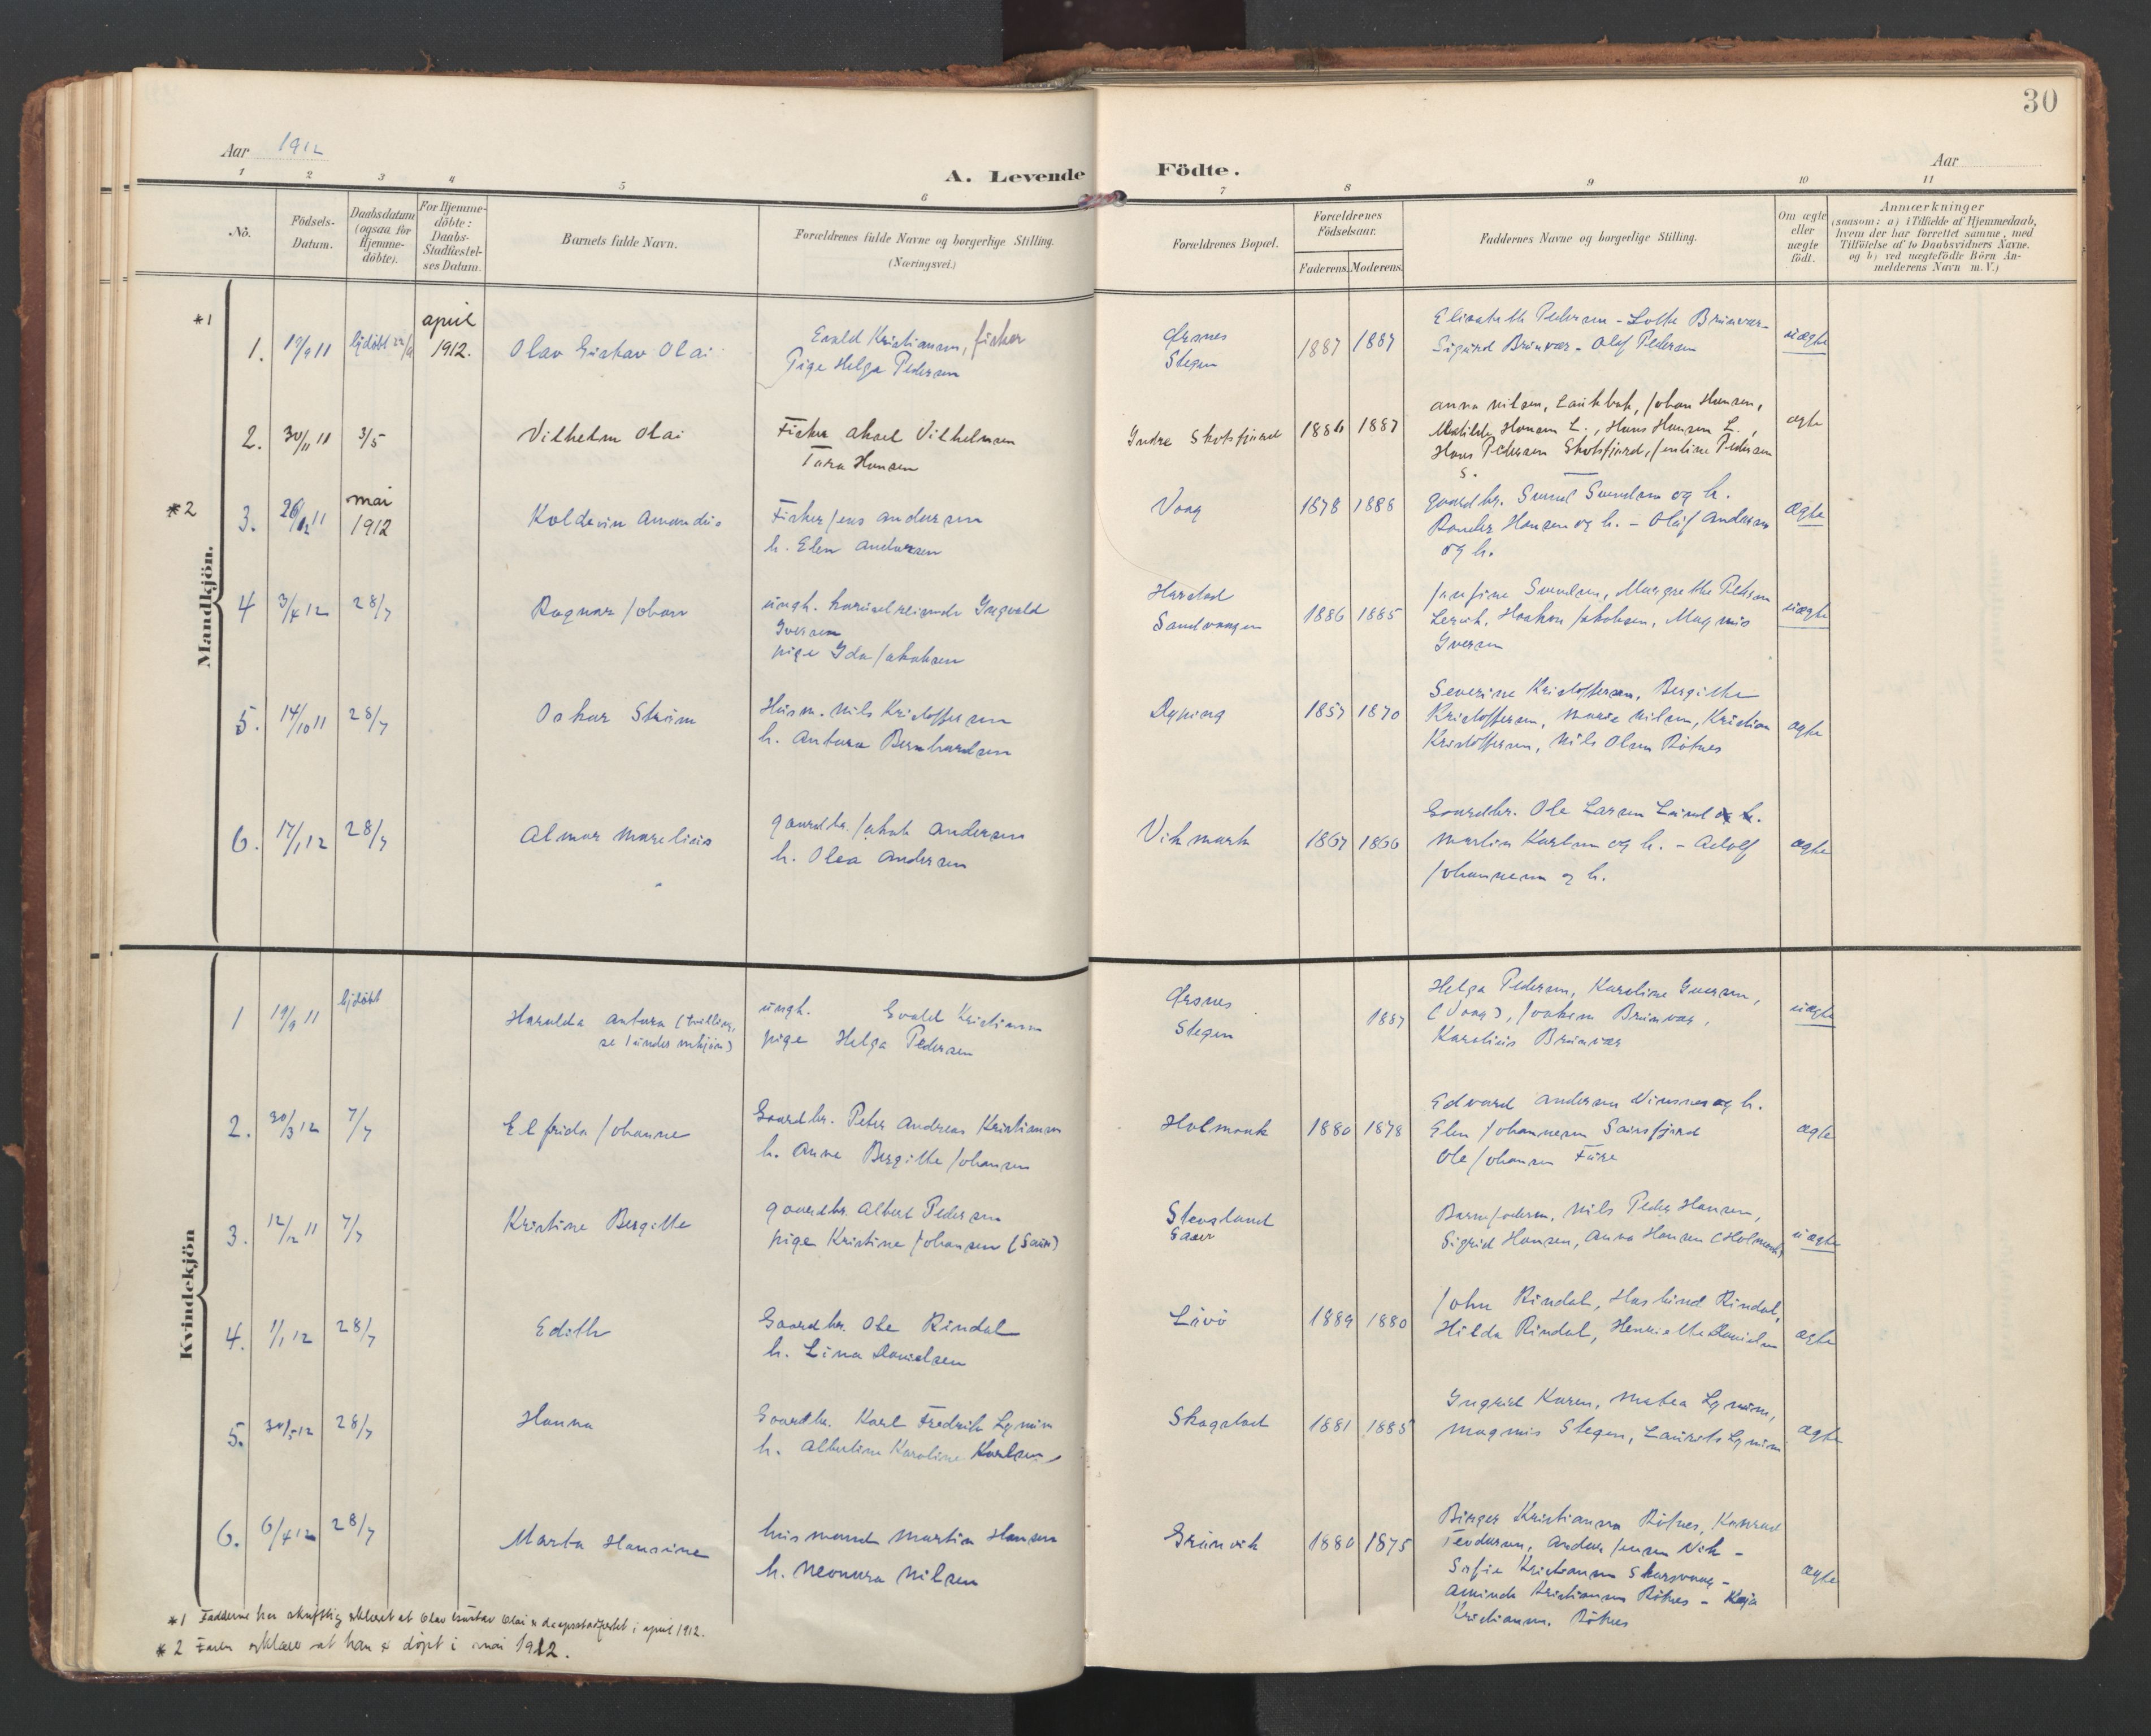 30
Aar 1912
Aar
A. Levende Födte.
1 2 3 4 5 6 7 8 9 10 11
No.
Födsels-
Datum.
Daabsdatum
(ogsaa for
Hjemme-
döbte).
For Hjemme-
döbte:
Daabs-
Stadfæstel-
ses Datum.
Barnets fulde Navn.
Forældrenes fulde Navne og borgerlige Stilling.
(Næringsvei.)
Forældrenes Bopæl.
Forældrenes
Födselsaar.
Faderens. Moderens.
Faddernes Navne og borgerlige Stilling.
Om ægte
eller
uægte
födt.
Anmærkninger
(saasom: a) i Tilfælde af Hjemmedaab,
hvem der har forrettet samme, med
Tilföielse af to Daabsvidners Navne.
og b) ved uægtefödte Börn An-
melderens Navn m. V.)
Mandkjön.
*1
1. 19/9 11 hjdöbt april
1912.
Olav Gustav Olai
Evald Kristiansen, fisker
Pige Helga Pedersen
Stegen
1887 1887
Elisabeth Pedersen - Lotte Brunvær-
Sigurd Brunvær - Olaf Pedersen
uægte
2. 30/11 11 3/5
Vilhelm Olai
Fisker Aksel Vilhelmsen
Tora Hansen
Indre Skotsfjord
1886 1887
Anna Nilsen, Laukbak, Johan Hansen,
Matilde Hansen L., Hans Hansen L.,
Hans Pedersen Skotsfjord, Jentine Pedersen
S.
ægte
*2
3. 26/12 11 mai
1912
Koldevin Amandus
Fisker Jens Andersen
h. Elen Andersen
Vaag
1878 1888
gaardbr. Svend Svendsen og h.
Hansen og h. - Olaf Andersen
og h.
ægte
4 3/4 12 28/7
Ragnar Johan
ungk. Ingvald
Iversen
pige Ida Jakobsen
Harstad
Sandvaagen
1886 1885
Jensine Svendsen, Margrethe Pettersen
Lervik, Haakon Jakobsen, Magnus
Iversen
uægte
5. 14/10 11 28/7
Oskar Strøm
Husm. Nils Kristoffersen
h. Antora Bernhardsen
Dyping
1857 1870
Severine Kristoffersen, Bergitte
Kristoffersen, Marie Nilsen, Kristian
Kristoffersen, Nils Olsen Rötnes
ægte
6. 17/1 12 28/7
Almar Marelius
gaardbr. Jakob Andersen
h. Olea Andersen
Vikmark
1867 1866
Gaardbr. Ole Larsen Lund og h.
Martin Karlsen og h. - Adolf
Johannesen og h.
ægte
Kvindekjön
1 19/9 11 hjdöbt
Haralda Antora (tvilling,
se 1 under mkjön)
ungk. Evald Kristiansen
pige Helga Pedersen
Stegen
1887
Helga Pedersen, Karoline Iversen,
(Vaag), Joakim Brunvær,
Karolius Brunvær
uægte
2. 30/3 12 7/7
Elfrida Johanne
Gaardbr. Peter Andreas Kristiansen
h. Anne Bergitte Johansen
Holmaak
1880 1878
Edvard Andersen Vinsnes og h.
Elen Johannesen Saursfjord
Ole Johansen Fure
ægte
3. 12/12 11 7/7
Kristine Bergitte
gaardbr. Albert Pedersen
pige Kristine Johansen (Saur)
Stavsland
Saur
Barnefaderen, Nils Peder Hansen,
Sigrid Hansen, Anna Hansen (Holmaak)
uægte
4. 1/1 12 28/7
Edith
Gaardbr. Ole Rindal
h. Lina Danielsen
Lövö
1889 1880
John Rindal, Haslund Rindal,
Hilda Rindal, Henriette Danielsen
ægte
5. 30/5 12 28/7
Hanna
Gaardbr. Karl Fredrik Lynum
h. Albertine Karoline Karlsen
Skagstad
1881 1885
Ingrid Karen, Matea Lynum,
Magnus Stegen, Laurits Lynum
ægte
6. 6/4 12 28/7
Marta Hansine
husmand Martin Hansen
h. Neonora Nilsen
Grunvik
1880 1875
Birger Kristiansen Rötnes, Konrad
Teodorsen, Anders Jensen Vik -
Sofie Kristiansen Skarsvaag -
Aminda Kristiansen Rötnes - Kaja
Kristiansen. Rötnes
ægte
*1 Fadderne har skriftlig erklæret at Olav Gustav Olai er daapsstadfestet i april 1912.
*2 Faren erklærer at han er döpt i mai 1912.